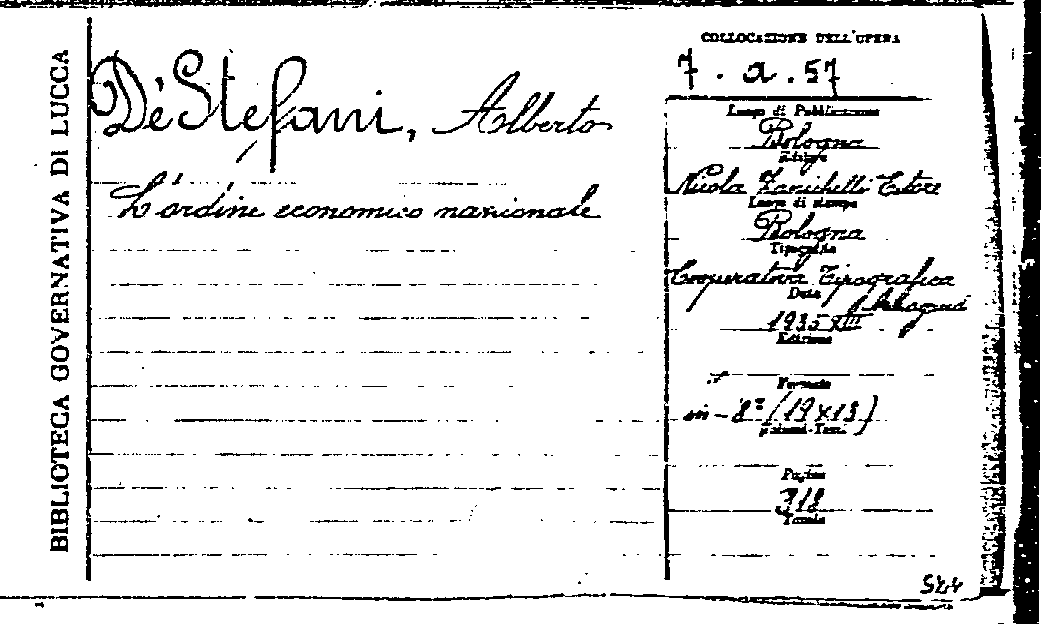 BIBLIOTECA GOVERNATIVA DI LUCCA
De' Stefani, Alberto
L'ordine economico nazionale
COLLOCAZIONE DELL'OPERA
7 . a . 57
Luogo di Pubblicazione
Bologna
Editore
Nicola Zanichelli Editore
Luogo di stampa
Bologna
Tipografia
Cooperativa Tipografica
Data
1935 XIII
Edizione
Formato
in-8° (19x13)
Pagine
318
Tavole